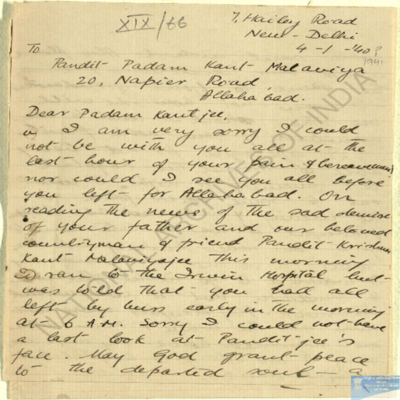 XIX/66
7, Hailey Road
New-Delhi
4-1-40?
1941
To
Pandit Padam Kant Malaviya
20, Napier Road,
Allahabad.
Dear Padam Kant jee,
I am very sorry I could
not be with you all at the
last hour of your pain & bereavement
nor could I see you all before
you left for Allahabad. On
reading the news of the sad demise
of your father and our beloved
countryman & friend Pandit Krishna
Kant Malaviyajee this morning
I ran to the Irwin Hospital but
was told that you had all
left by buss early in the morning
at 6 A.M. Sorry I could not have
a last look at Pandit jee's
face. May God grant peace
to the departed soul - a
NATIONAL ARCHIVES OF INDIA